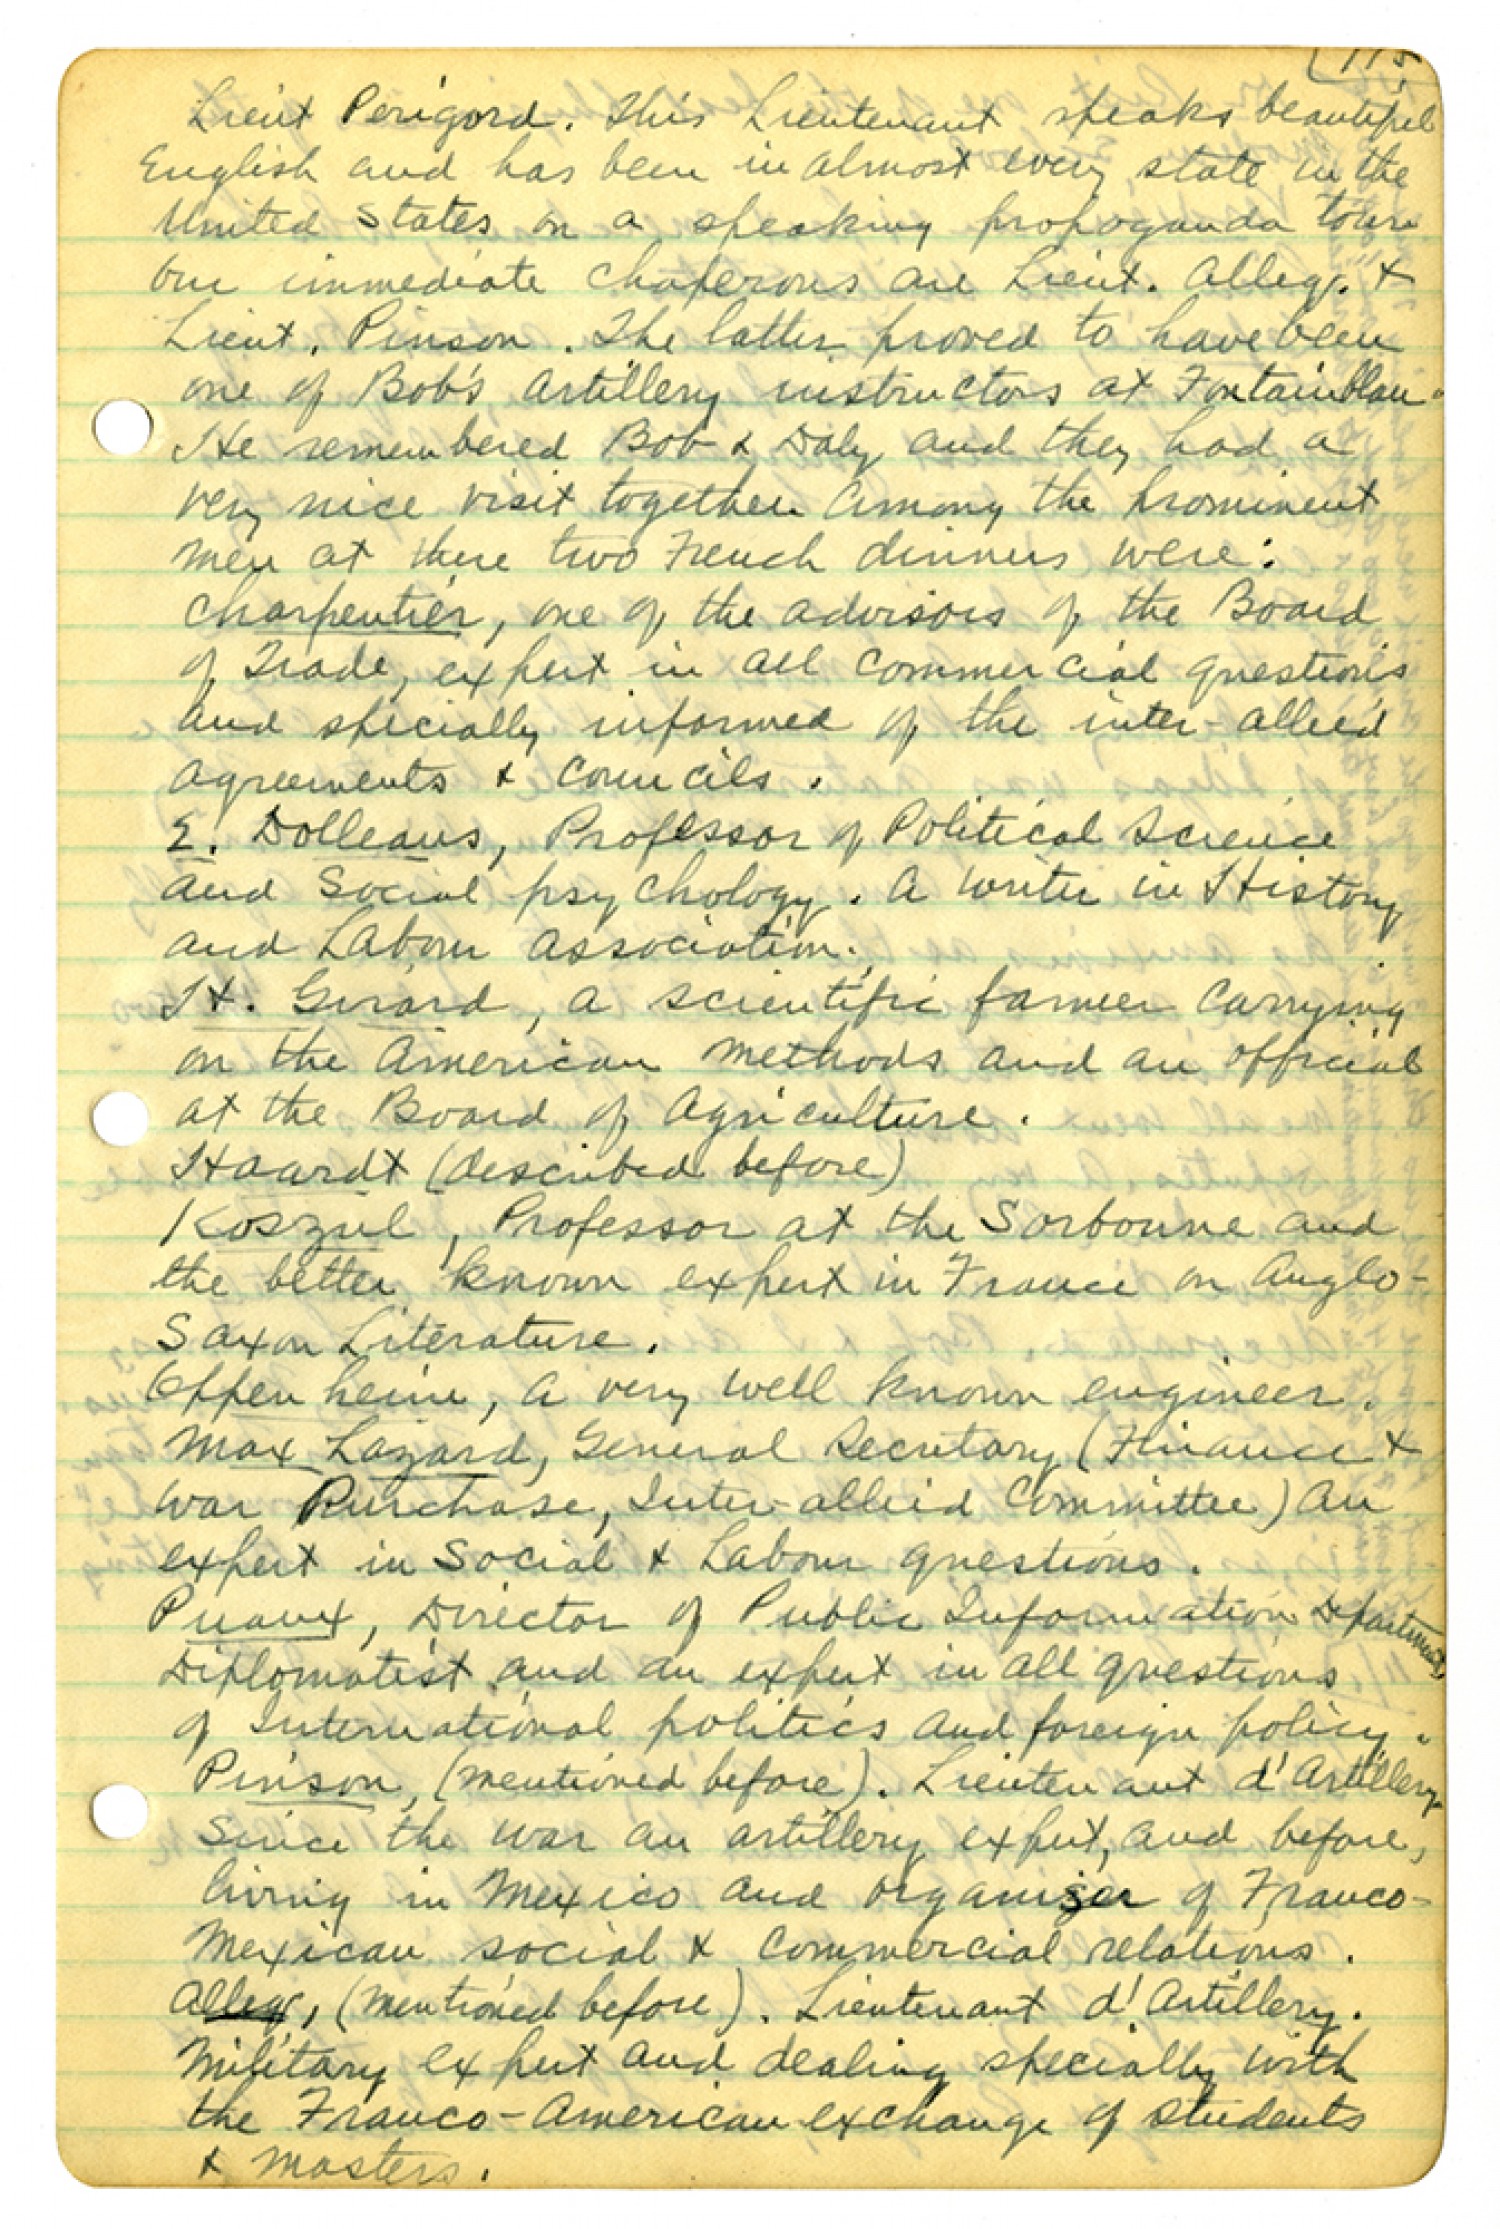 115
Lieut Perigord. This Lieutenant speaks beautiful
English and has been in almost every state in the
United States on a speaking propoganda tour
Our immediate chaperons are Lieut. Allegr. &
Lieut. Pinson. The latter proved to have been
one of Bob's Artillery instructors at Fontainblau.
He remembered Bob & Daly and they had a
very nice visit together Among the prominent
men at there two French dinners were:
Charpentier, one of the advisors of the Board
of Trade, expert in all commercial questions
and specially informed of the inter-allied
agreements & Councils.
E. Dolleans, Professor of Political Science
and Social psychology. A writer in History
and Labour Association.
H. Girard, a scientific farmer carrying
on the American methods and an official
at the Board of Agriculture.
Haardt (described before)
Koszul, Professor at the Sorbonne and
the better known expert in France on Anglo-
Saxon Literature.
Oppenheim, a very well known engineer.
Max Lazard, General Secretary (Finance &
War Purchase, Inter-allied Committee) An
expert in Social & Labour questions.
Puaux, Director of Public Information Department,
Diplomatist and an expert in all questions
of International politics and foreign policy.
Pinson, (mentioned before). Lieutenant d'Artillery
Since the war an artillery expert, and before,
living in Mexico and organiser of Franco-
Mexican social & commercial relations.
Allegr, (mentioned before). Lieutenant d'Artillery.
Military expert and dealing specially with
the Franco-American exchange of students
& masters.